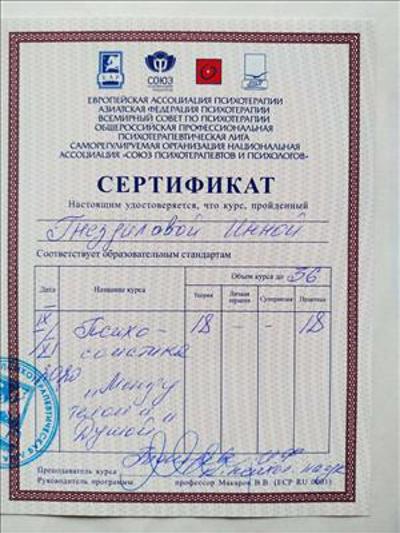 EAP
СОЮЗ
ЕВРОПЕЙСКАЯ АССОЦИАЦИЯ ПСИХОТЕРАПИИ
АЗИАТСКАЯ ФЕДЕРАЦИЯ ПСИХОТЕРАПИИ
ВСЕМИРНЫЙ СОВЕТ ПО ПСИХОТЕРАПИИ
ОБЩЕРОССИЙСКАЯ ПРОФЕССИОНАЛЬНАЯ
ПСИХОТЕРАПЕВТИЧЕСКАЯ ЛИГА
САМОРЕГУЛИРУЕМАЯ ОРГАНИЗАЦИЯ НАЦИОНАЛЬНАЯ
АССОЦИАЦИЯ «СОЮЗ ПСИХОТЕРАПЕВТОВ И ПСИХОЛОГОВ»
СЕРТИФИКАТ
Настоящим удостоверяется, что курс, пройденный
Гнездиловой Инной
Соответствует образовательным стандартам
Дата Название курса Объем курса до 36
Теория Личная терапия Супервизия Практика
IX Психо- 18 - - 18
XI сомистика
2020 „Между
телом и
Душой"
психол. наук
Преподаватель курса
Руководитель программы профессор Макаров В.В. (ECP RU 0001)